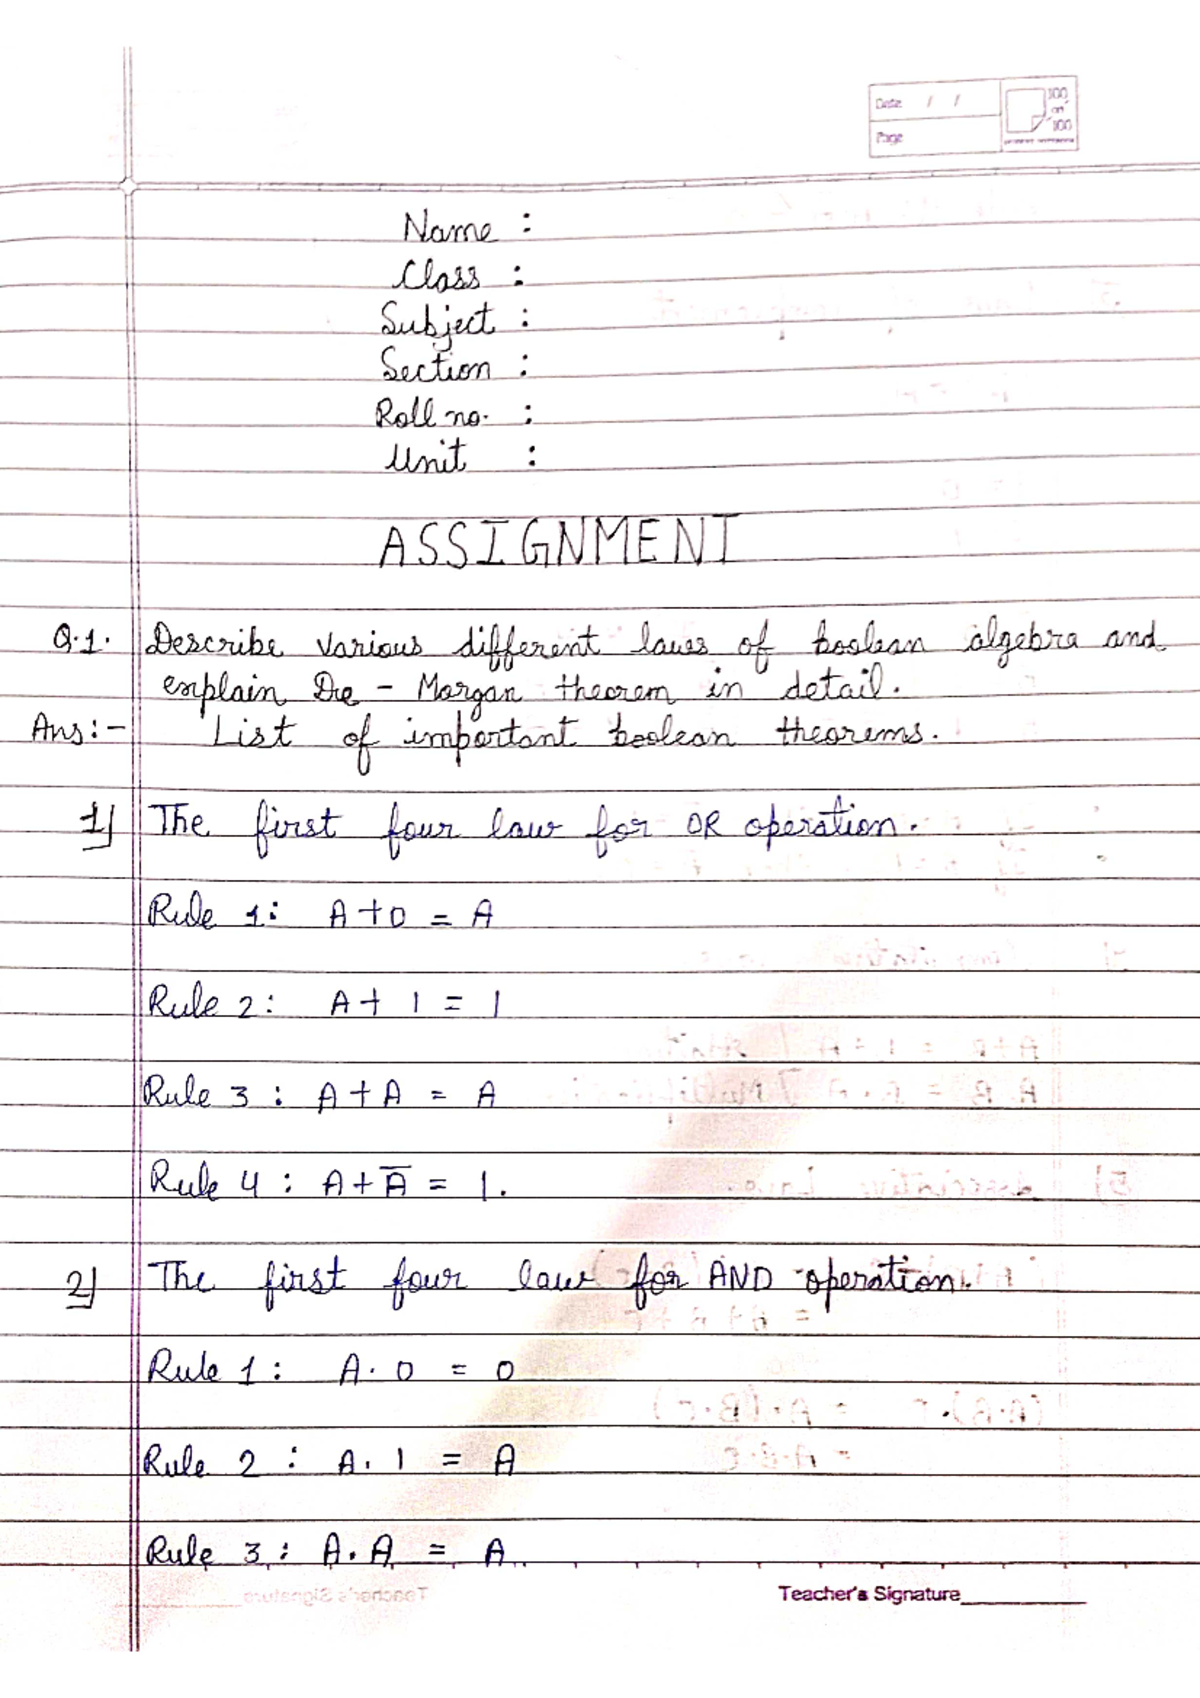 Date / /
100
on
100
Page
Name :
Class :
Subject :
Section :
Roll no. :
Unit :
ASSIGNMENT
Q.1. Describe various different laws of boolean algebra and
explain De - Morgan theorem in detail.
Ans:- List of important boolean theorems.
1) The first four law for OR operation.
Rule 1: A+0 = A
Rule 2: A+ 1 = 1
Rule 3 : A+A = A
Rule 4 : A+A̅ = 1.
2) The first four law for AND operation.
Rule 1 : A. 0 = 0
Rule 2 : A. 1 = A
Rule 3 : A. A = A
Teacher's Signature